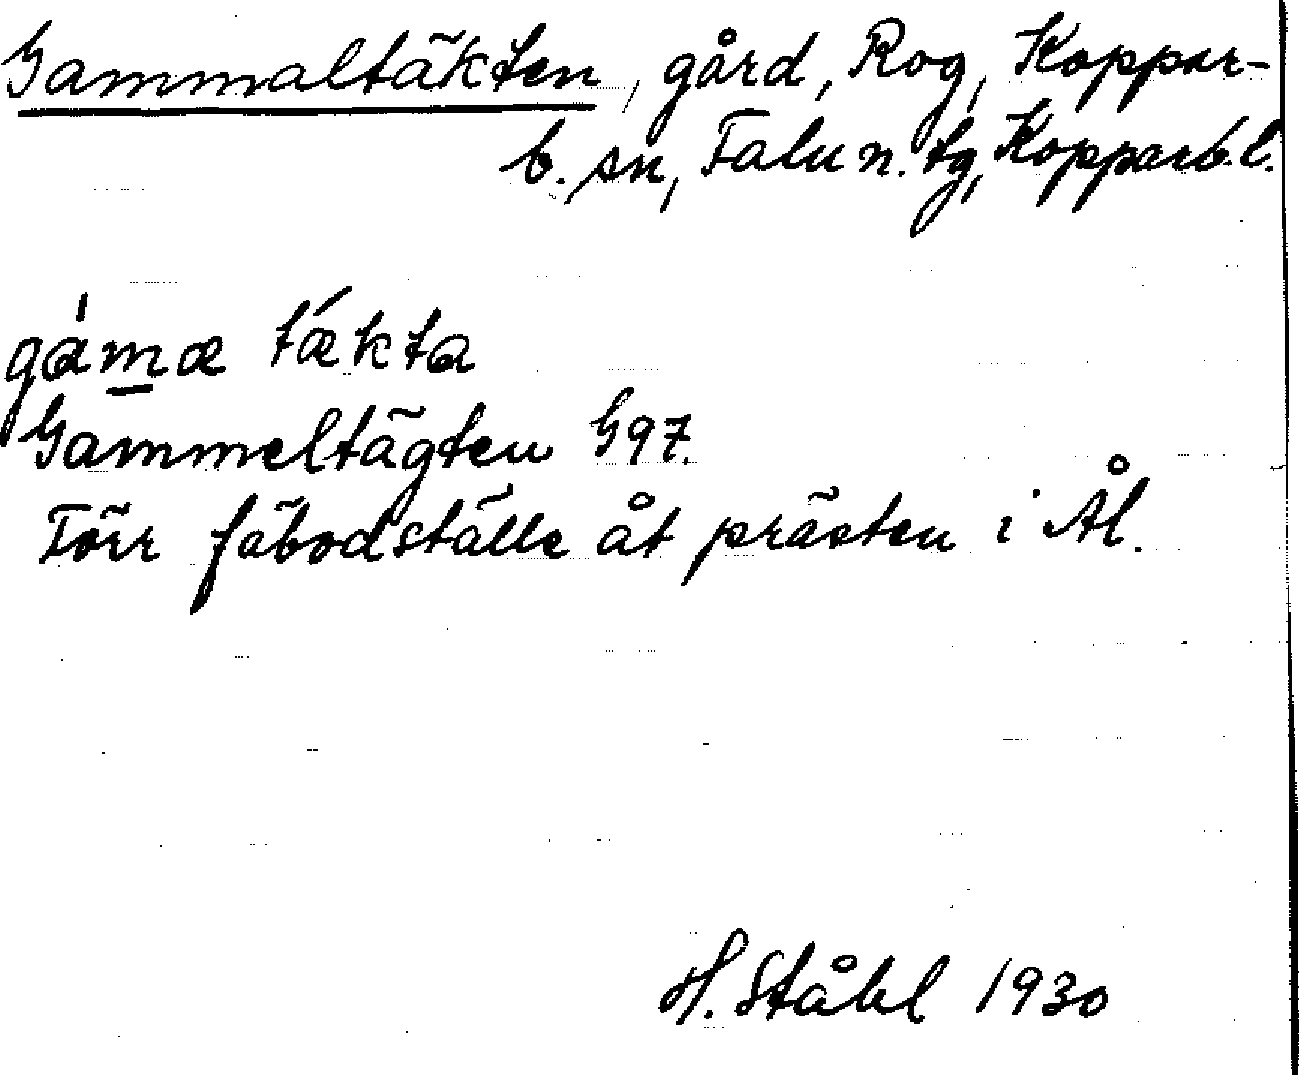 Gammaltäkten, gård, Rog, Koppar-
b. sn, Falu n. tg, Kopparb.l.
gàmæ tǽkta
Gammeltägten G97.
Förr fäbodställe åt prästen i Ål.
H. Ståhl 1930